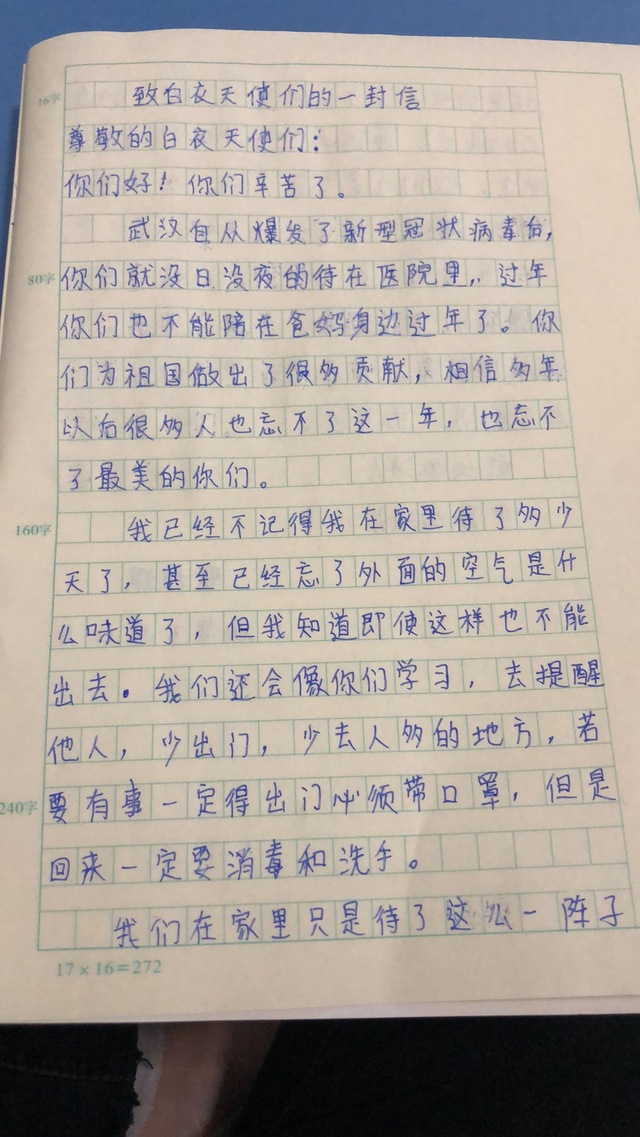 致白衣天使们的一封信
16字
尊敬的白衣天使们：
你们好！你们辛苦了。
武汉自从爆发了新型冠状病毒后，
80字
你们就没日没夜的待在医院里，过年
你们也不能陪在爸妈身边过年了。你
们为祖国做出了很多贡献，相信多年
以后很多人也忘不了这一年，也忘不
了最美的你们。
160字
我已经不记得我在家里待了多少
天了，甚至已经忘了外面的空气是什
么味道了，但我知道即使这样也不能
出去。我们还会像你们学习，去提醒
他人，少出门，少去人多的地方，若
240字
要有事一定得出门必须带口罩，但是
回来一定要消毒和洗手。
我们在家里只是待了这么一阵子
17×16=272